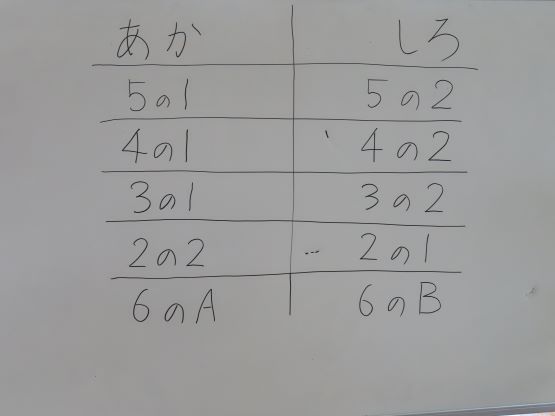 あか しろ
5の1 5の2
4の1 4の2
3の1 3の2
2の2 2の1
6のA 6のB